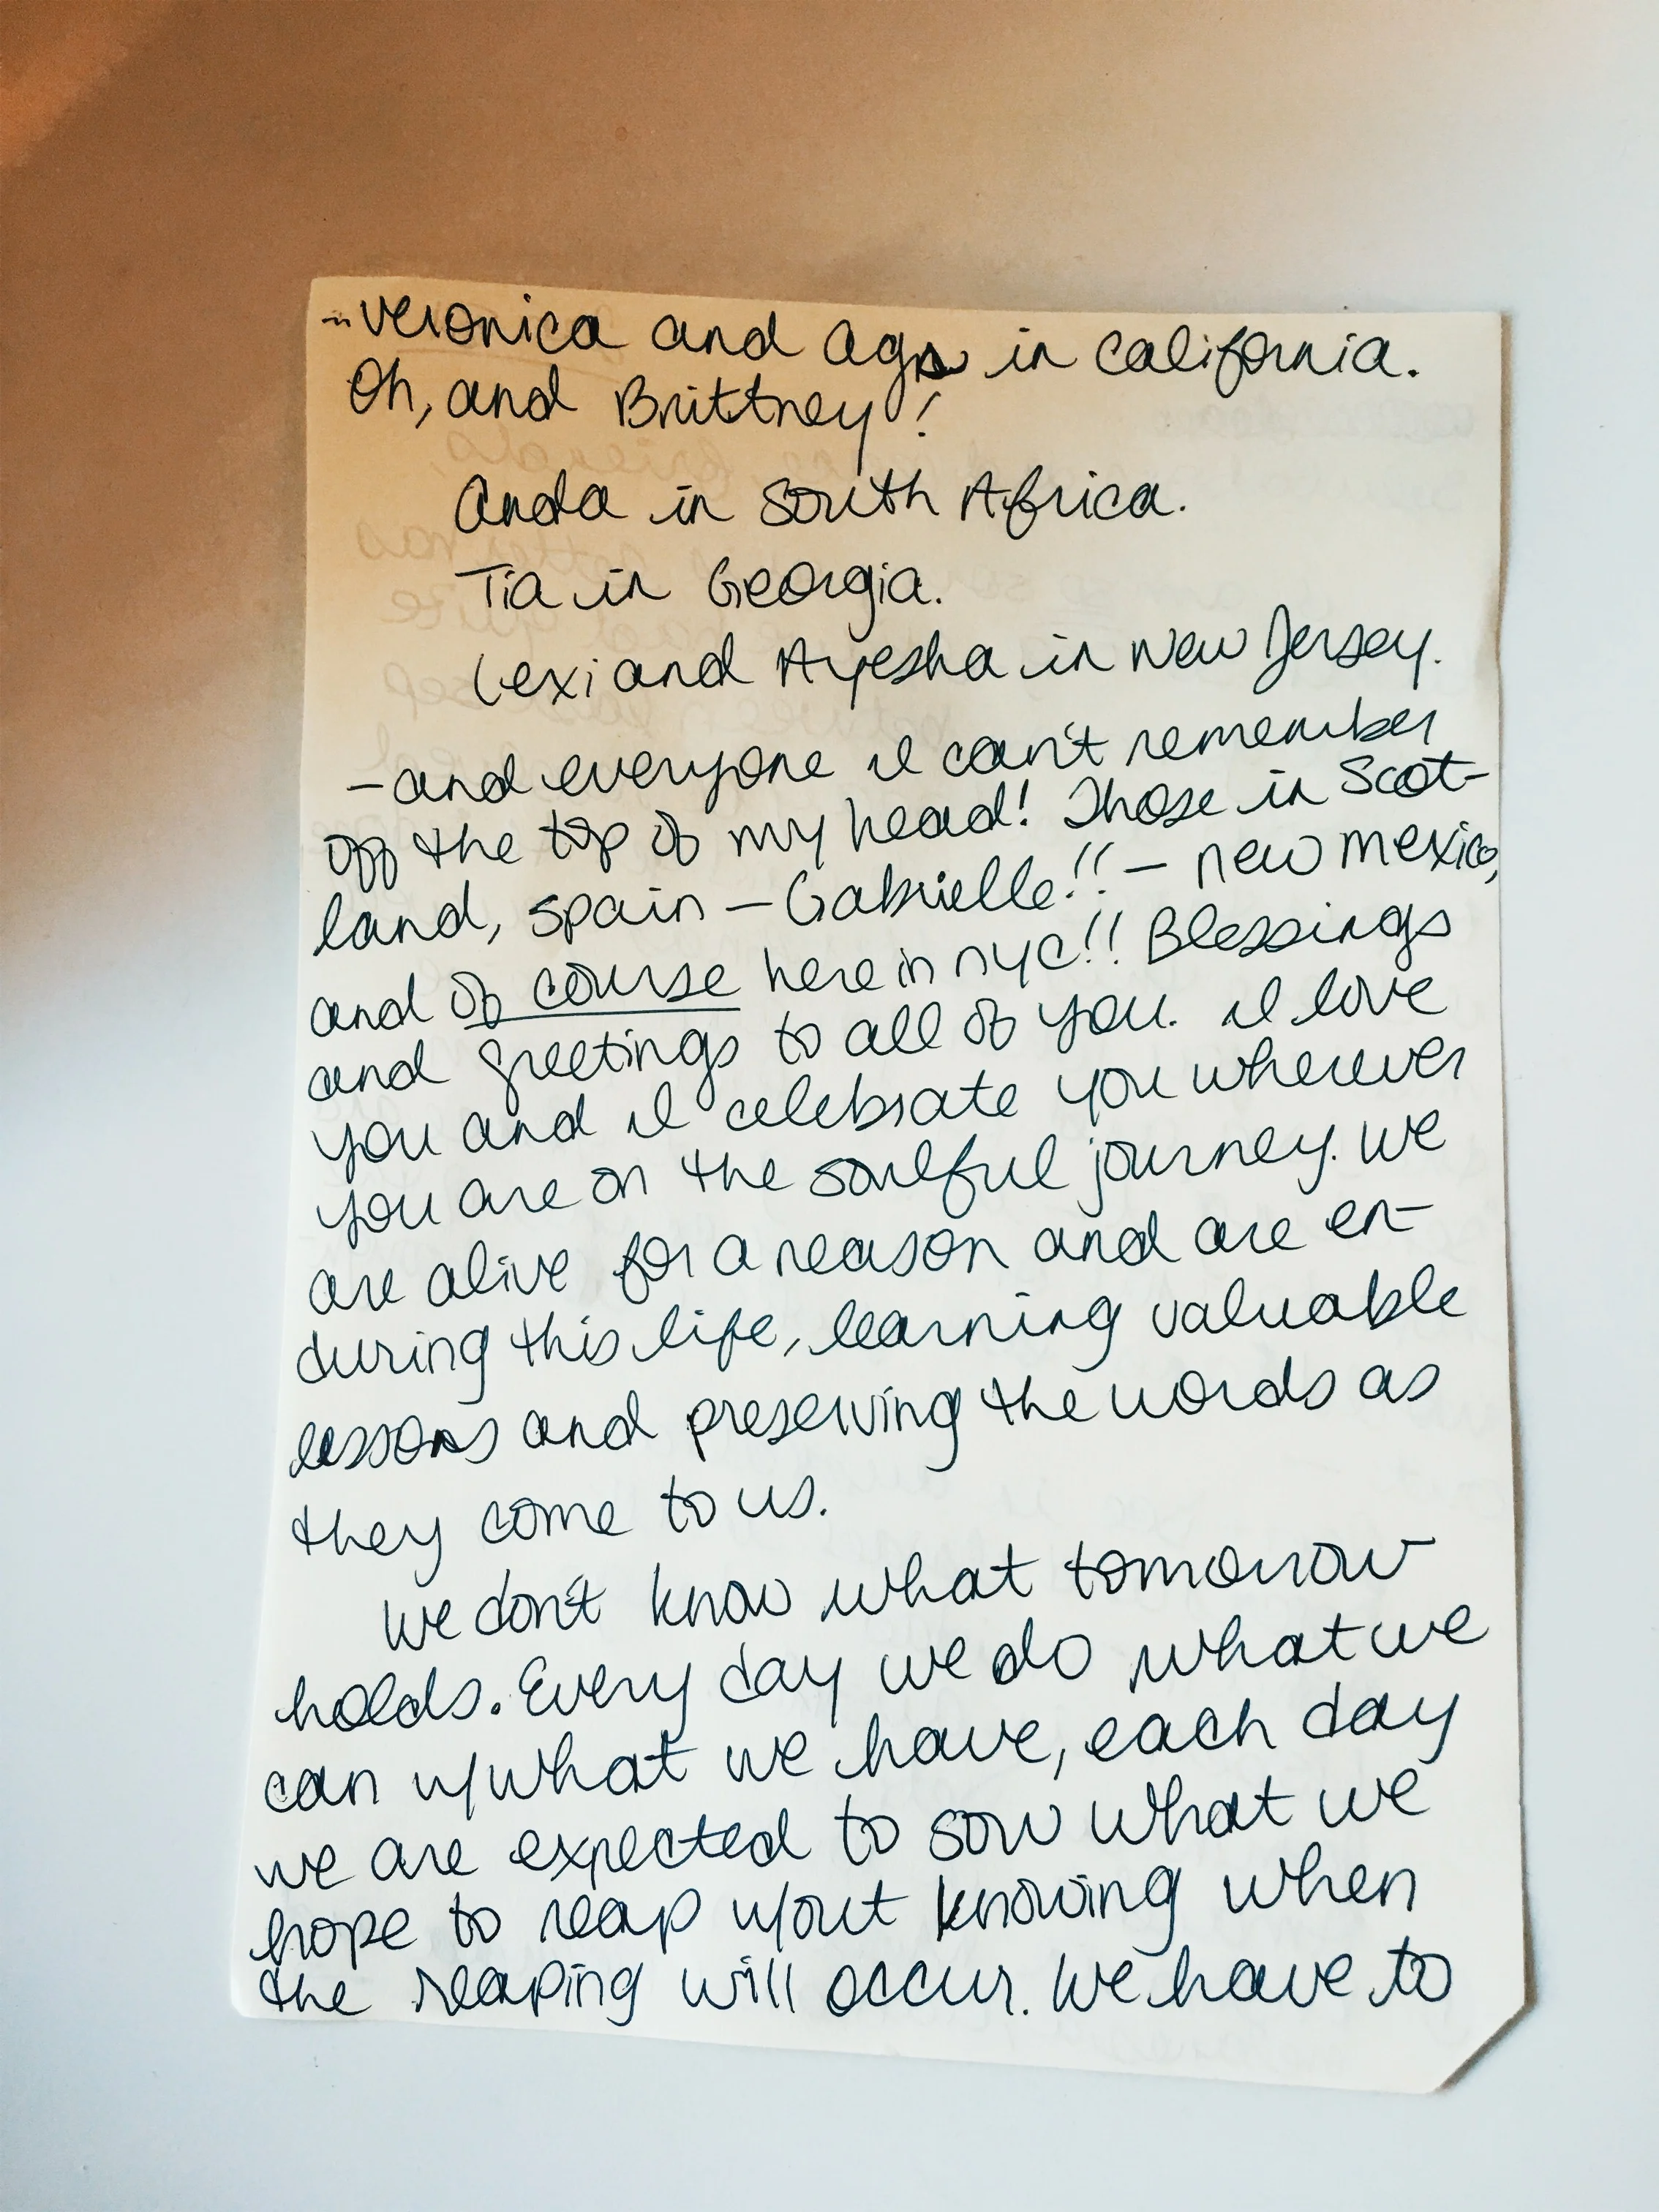 - Veronica and in California.
Oh, and Brittney!
Anda in South Africa.
Tia in Georgia.
Lexi and Ayesha in New Jersey.
- and everyone I can't remember
off the top of my head! Those in Scot-
land, Spain - Gabrielle!! - new mexico,
and of course here in nyc!! Blessings
and greetings to all of you. I love
you and I celebrate you wherever
you are on the soulful journey. We
are alive for a reason and are en-
during this life, learning valuable
lessons and preserving the words as
they come to us.
We don't know what tomorrow
holds. Every day we do what we
can w/what we have, each day
we are expected to sow what we
hope to reap w/out knowing when
the reaping will occur. We have to